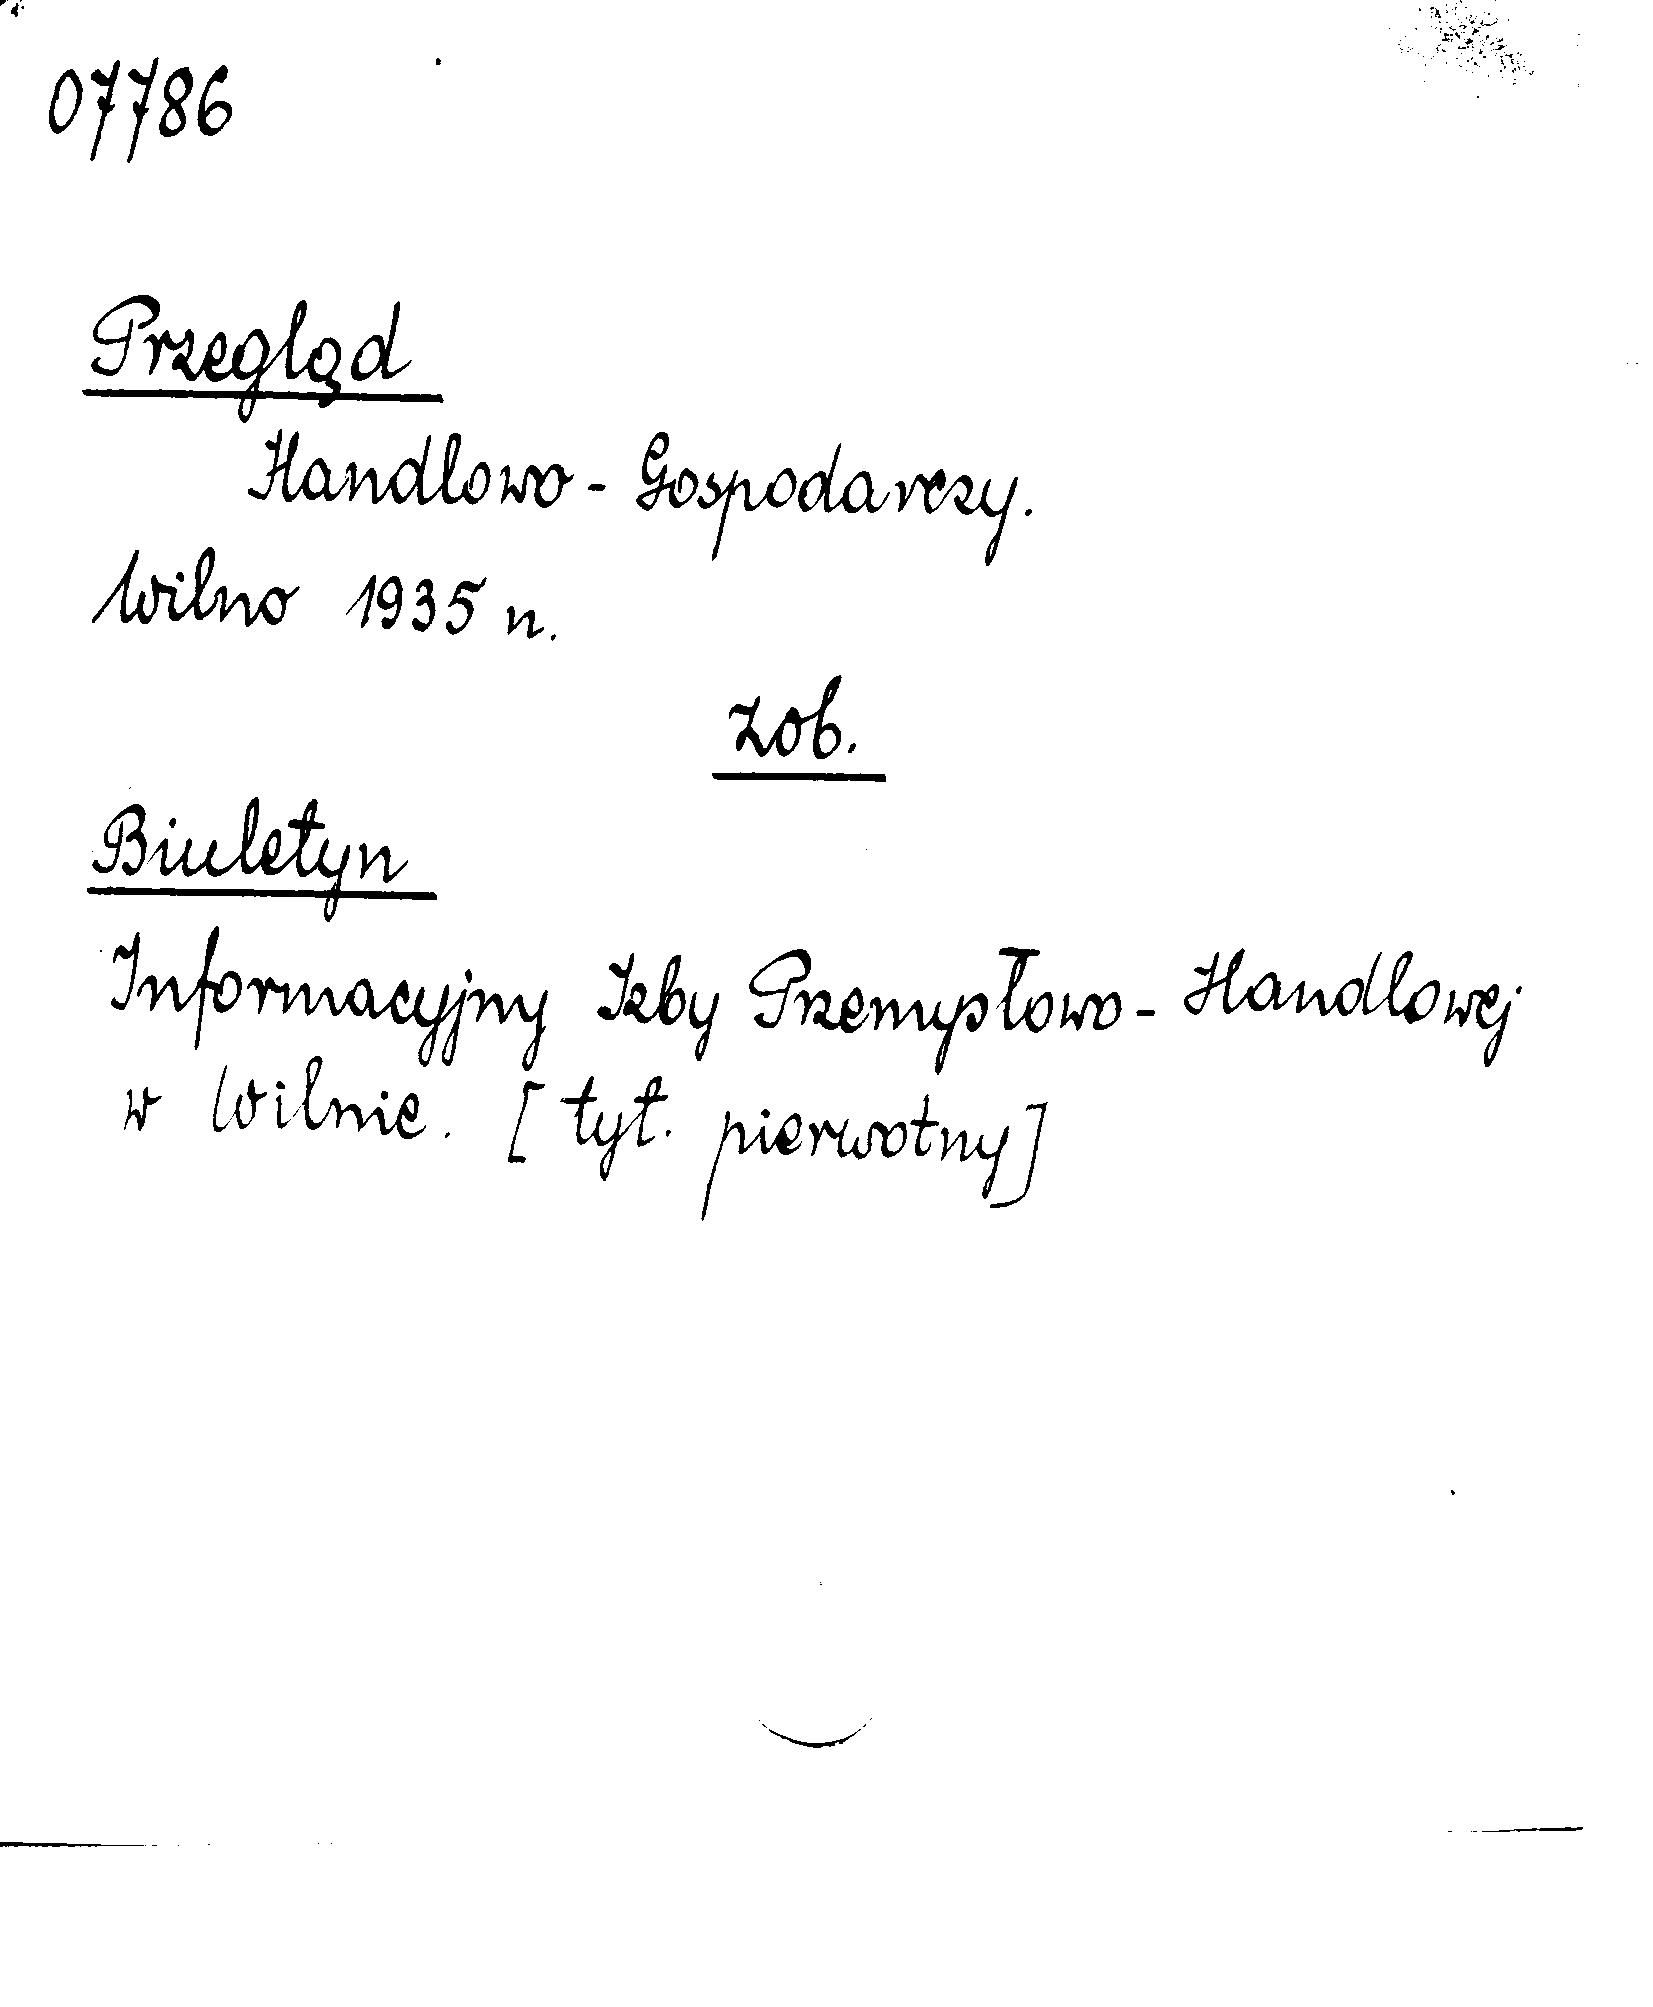 07786
Przegląd
Handlowo - Gospodarczy.
Wilno 1935 n.
zob.
Biuletyn
Informacyjny Izby Przemysłowo - Handlowej
w Wilnie. [tyt. pierwotny]